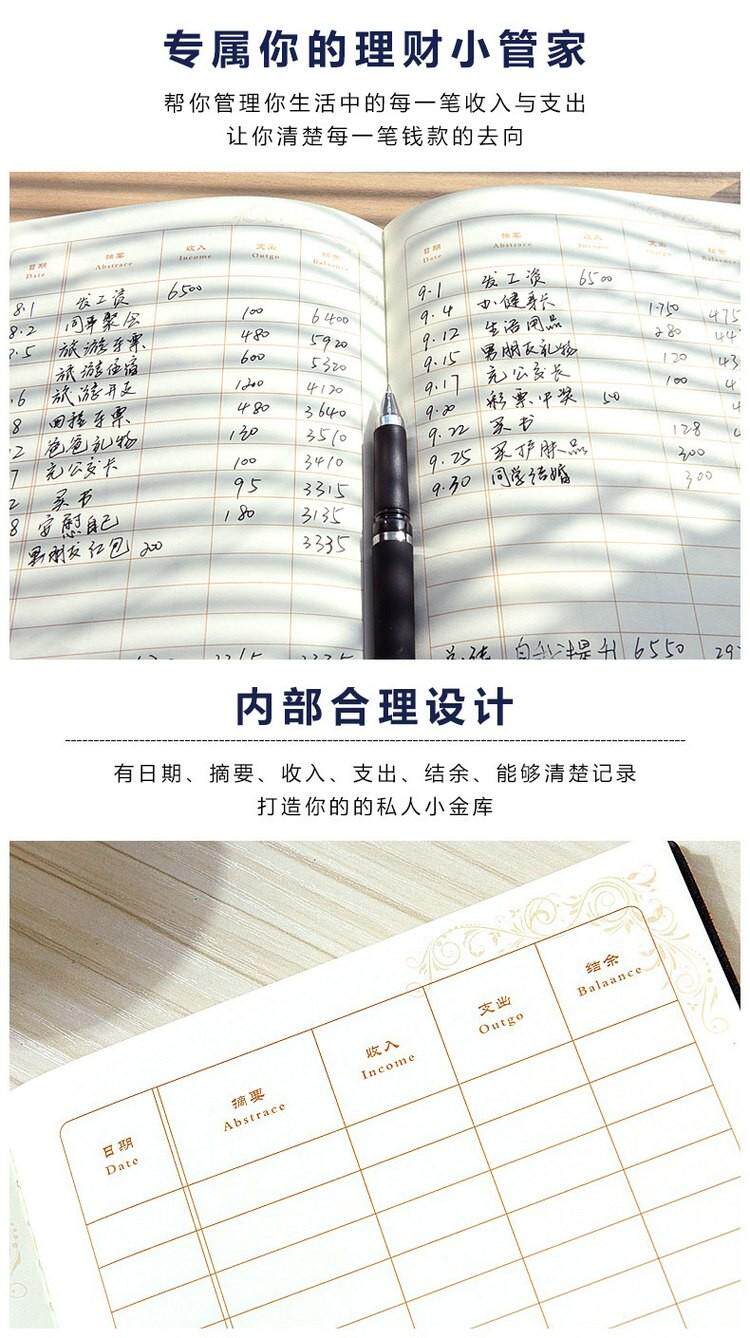 专属你的理财小管家
帮你管理你生活中的每一笔收入与支出
让你清楚每一笔钱款的去向
日期 摘要 收入 支出 结余
Date Abstrace Income Outgo Balaance
8.1 发工资 6500
8.2 同事聚会 100 6400
.5 旅游车票 480 5920
旅游住宿 600 5320
.6 旅游开支 1200 4120
8 回程车票 480 3640
2 爸爸礼物 130 3510
7 充公交卡 100 3410
2 买书 95 3315
8 安慰自己 180 3135
男朋友红包 200 3335
日期 摘要 收入 支出 结余
Date Abstrace Income Outgo Balaance
9.1 发工资 6500
9.4 办健身卡 1750 475
9.12 生活用品 280 44
9.15 男朋友礼物 120 43
9.17 充公交卡 100 4
9.20 彩票中奖 50 4
9.22 买书 128 4
9.25 买护肤品 300
9.30 同学结婚 300
自我提升 6550 29
内部合理设计
有日期、摘要、收入、支出、结余、能够清楚记录
打造你的的私人小金库
日期 摘要 收入 支出 结余
Date Abstrace Income Outgo Balaance